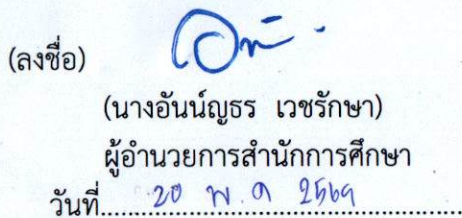 (ลงชื่อ)
(นางอันน์ญธร เวชรักษา)
ผู้อำนวยการสำนักการศึกษา
วันที่ 20 พ.ค 2569